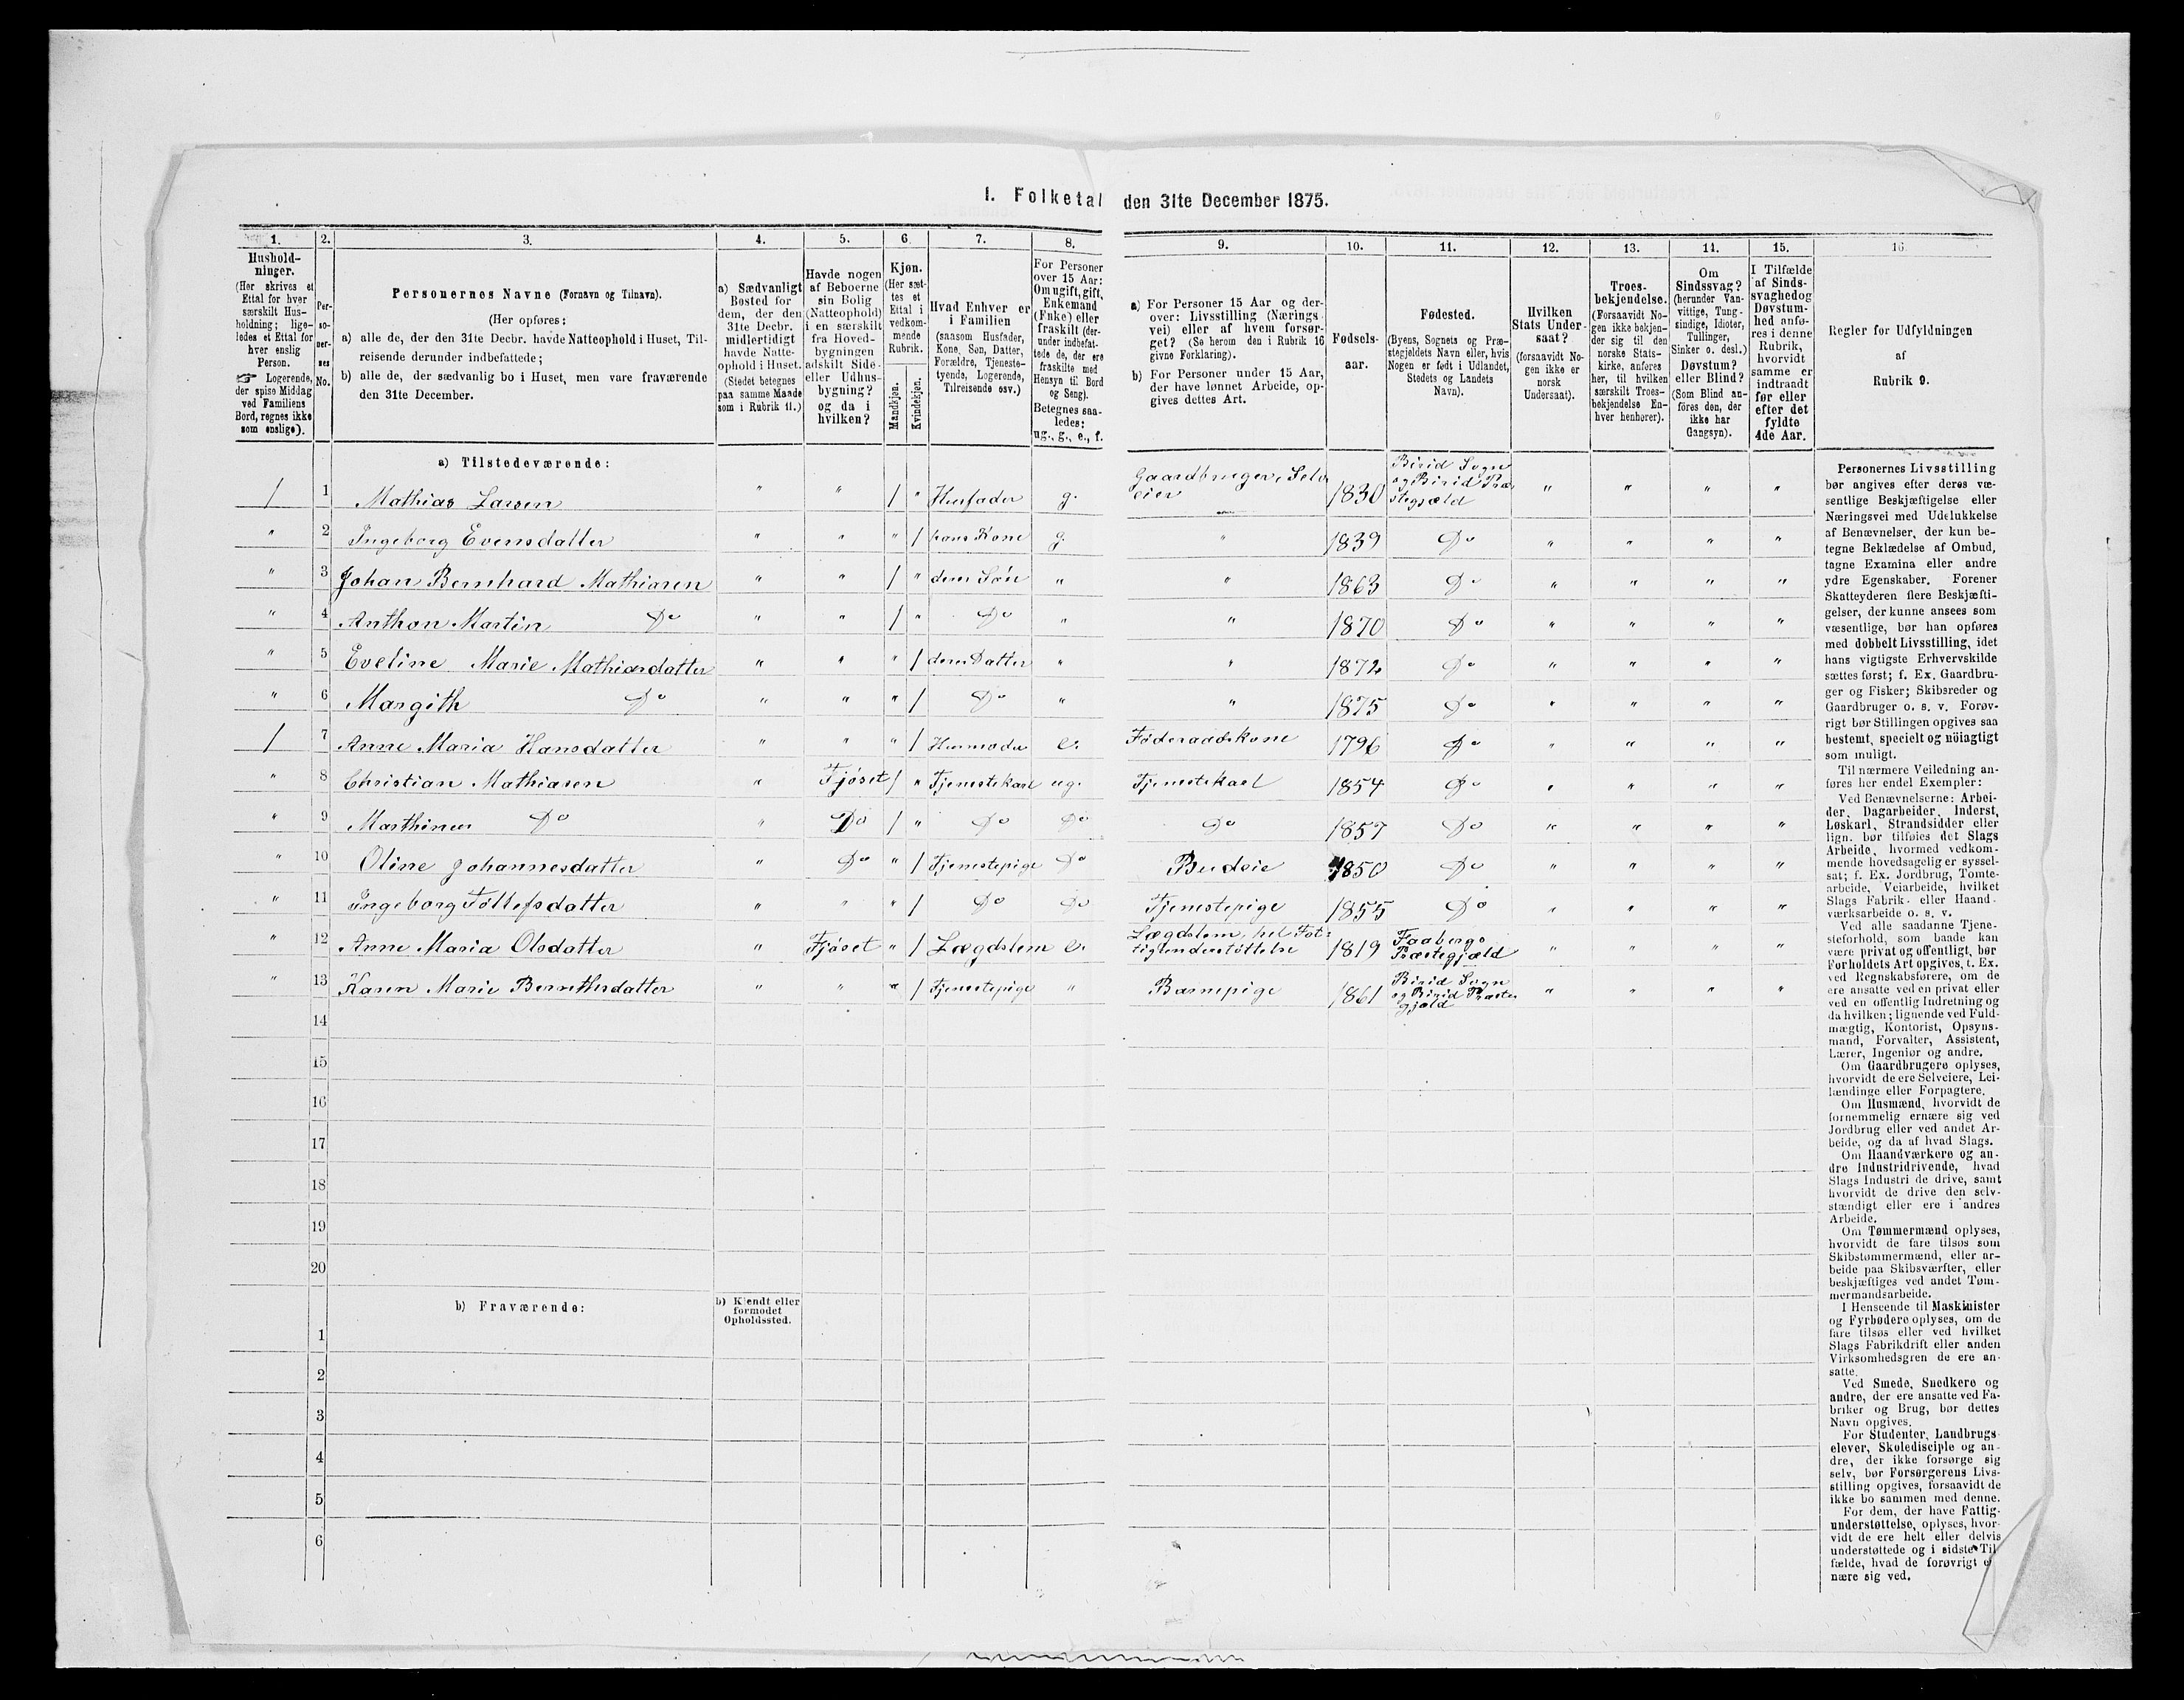 I. Folketal den 31te December 1875.
1. 2. 3. 4. 5. 6. 7. 8. 9. 10. 11. 12. 13. 14. 15. 16.
Hushold-
ninger.
(Her skrives et
Ettal for hver
særskilt Hus-
holdning; lige-
ledes et Ettal for
hver enslig
Person.
☞ Logerende,
der spise Middag
ved Familiens
Bord, regnes ikke
som enslige).
Per-
so-
ner-
nes
No.
Personernes Navne (Fornavn og Tilnavn).
(Her opføres:
a) alle de, der den 31te Decbr. havde Natteophold i Huset, Til-
reisende derunder indbefattede;
b) alle de, der sædvanlig bo i Huset, men vare fraværende
den 31te December.
a) Sædvanligt
Bosted for
dem, der den
31te Decbr.
midlertidigt
havde Natte-
ophold i Huset.
(Stedet betegnes
paa samme Maade
som i Rubrik 11.)
Havde nogen
af Beboerne
sin Bolig
(Natteophold)
i en særskilt
fra Hoved-
bygningen
adskilt Side-
eller Udhus-
bygning?
og da i
hvilken?
Kjøn.
(Her sæt-
tes et
Ettal i
vedkom-
mende
Rubrik.
Mandkjøn.
Kvindekjøn.
Hvad Enhver er
i Familien
(saasom Husfader,
Kone, Søn, Datter,
Forældre, Tjeneste-
tyende, Logerende,
Tilreisende osv.)
For Personer
over 15 Aar:
Om ugift, gift,
Enkemand
(Enke) eller
fraskilt (der-
under indbefat-
tede de, der ere
fraskilte med
Hensyn til Bord
og Seng).
Betegnes saa-
ledes:
ug., g., e., f.
a) For Personer 15 Aar og der-
over: Livsstilling (Nærings-
vei) eller af hvem forsør-
get? (Se herom den i Rubrik 16
givne Forklaring).
b) For Personer under 15 Aar,
der have lønnet Arbeide, op-
gives dettes Art.
Fødsels-
aar.
Fødested.
(Byens, Sognets og Præ-
stegjeldets Navn eller, hvis
Nogen er født i Udlandet,
Stedets og Landets
Navn).
Hvilken
Stats Under-
saat?
(forsaavidt No-
gen ikke er
norsk
Undersaat).
Troes-
bekjendelse.
(Forsaavidt No-
gen ikke bekjen-
der sig til den
norske Stats-
kirke, anføres
her, til hvilken
særskilt Troes-
bekjendelse En-
hver henhører).
Om
Sindssvag?
(herunder Van-
vittige, Tung-
sindige, Idioter,
Tullinger,
Sinker o. desl.)
Døvstum?
eller Blind?
(Som Blind an-
føres den, der
ikke har
Gangsyn).
I Tilfælde
af Sinds-
svaghed og
Døvstum-
hed anfø-
res i denne
Rubrik,
hvorvidt
samme er
indtraadt
før eller
efter det
fyldte
4de Aar.
Regler for Udfyldningen
af
Rubrik 9.
a) Tilstedeværende:
1 1 Mathias Larsen " " 1 " Husfader g. Gaardbruger, Selveier 1830 Birid Sogn og Birid Præstegjæld " " " "
" 2 Ingeborg Evensdatter " " " 1 hans Kone g. " 1839 Do " " " "
" 3 Johan Bernhard Mathiasen " " 1 " deres Søn " " 1863 Do " " " "
" 4 Anthon Martin Do " " 1 " Do " " 1870 Do " " " "
" 5 Eveline Marie Mathiasdatter " " " 1 deres Datter " " 1872 Do " " " "
" 6 Margith Do " " " 1 Do " " 1875 Do " " " "
1 7 Anne Maria Hansdatter " " " 1 Husmoder e. Føderaadskone 1796 Do " " " "
" 8 Christian Mathiasen " Fjøset 1 " Tjenestekarl ug. Tjenestekarl 1854 Do " " " "
" 9 Marthinus Do " Do 1 " Do Do Do 1857 Do " " " "
" 10 Oline Johannesdatter " Do " 1 Tjenestepige Do Budeie 1850 Do " " " "
" 11 Ingeborg Tollefsdatter " " " 1 Do Do Tjenestepige 1855 Do " " " "
" 12 Anne Maria Olsdatter " Fjøset " 1 Lægdslem e. Lægdslem, hel Fattigunderstøttelse 1819 Faabergs Præstegjæld " " " "
" 13 Karen Marie Bernthsdatter " " " 1 Tjenestepige " Barnepige 1861 Birid Sogn og Birid Præstegjæld " " " "
14
15
16
17
18
19
20
b) Fraværende:
b) Kjendt eller
formodet
Opholdssted.
1
2
3
4
5
6
Personernes Livsstilling
bør angives efter deres væ-
sentlige Beskjæftigelse eller
Næringsvei med Udelukkelse
af Benævnelser, der kun be-
tegne Beklædelse af Ombud,
tagne Examina eller andre
ydre Egenskaber. Forener
Skatteyderen flere Beskjæfti-
gelser, der kunne ansees som
væsentlige, bør han opføres
med dobbelt Livsstilling, idet
hans vigtigste Erhvervskilde
sættes først; f. Ex. Gaardbru-
ger og Fisker; Skibsreder og
Gaardbruger o. s. v. Forøv-
rigt bør Stillingen opgives saa
bestemt, specielt og nöiagtigt
som muligt.
Til nærmere Veiledning an-
føres her endel Exempler:
Ved Benævnelserne: Arbei-
der, Dagarbeider, Inderst,
Løskarl, Strandsidder eller
lign. bør tilføies det Slags
Arbeide, hvormed vedkom-
mende hovedsagelig er syssel-
sat; f. Ex. Jordbrug, Tomte-
arbeide, Veiarbeide, hvilket
Slags Fabrik- eller Haand-
værksarbeide o. s. v.
Ved alle saadanne Tjene-
steforhold, som baade kan
være privat og offentligt, bør
Forholdets Art opgives, t. Ex.
ved Regnskabsførere, om de
ere ansatte ved en privat eller
ved en offentlig Indretning og
da hvilken; lignende ved Fuld-
mægtig, Kontorist, Opsyns-
mand, Forvalter, Assistent,
Lærer, Ingeniør og andre.
Om Gaardbrugere oplyses,
hvorvidt de ere Selveiere, Lei-
lændinge eller Forpagtere.
Om Husmænd, hvorvidt de
fornemmelig ernære sig ved
Jordbrug eller ved andet Ar-
beide, og da af hvad Slags.
Om Haandværkere og an-
dre Industridrivende, hvad
Slags Industri de drive, samt
hvorvidt de drive den selv-
stændigt eller ere i andres
Arbeide.
Om Tømmermænd oplyses,
hvorvidt de fare tilsøs som
Skibstømmermænd, eller ar-
beide paa Skibsværfter, eller
beskjæftiges ved andet Tøm-
mermandsarbeide.
I Henseende til Maskinister
og Fyrbødere oplyses, om de
fare tilsøs eller ved hvilket
Slags Fabrikdrift eller anden
Virksomhedsgren de ere an-
satte.
Ved Smede, Snedkere og
andre, der ere ansatte ved Fa-
briker og Brug, bør dettes
Navn opgives.
For Studenter, Landbrugs-
elever, Skoledisciple og an-
dre, der ikke forsørge sig
selv, bør Forsørgerens Livs-
stilling opgives, forsaavidt de
ikke bo sammen med denne.
For dem, der have Fattig-
understøttelse, oplyses, hvor-
vidt de ere helt eller delvis
understøttede og i sidste Til-
fælde, hvad de forøvrigt er-
nære sig ved.